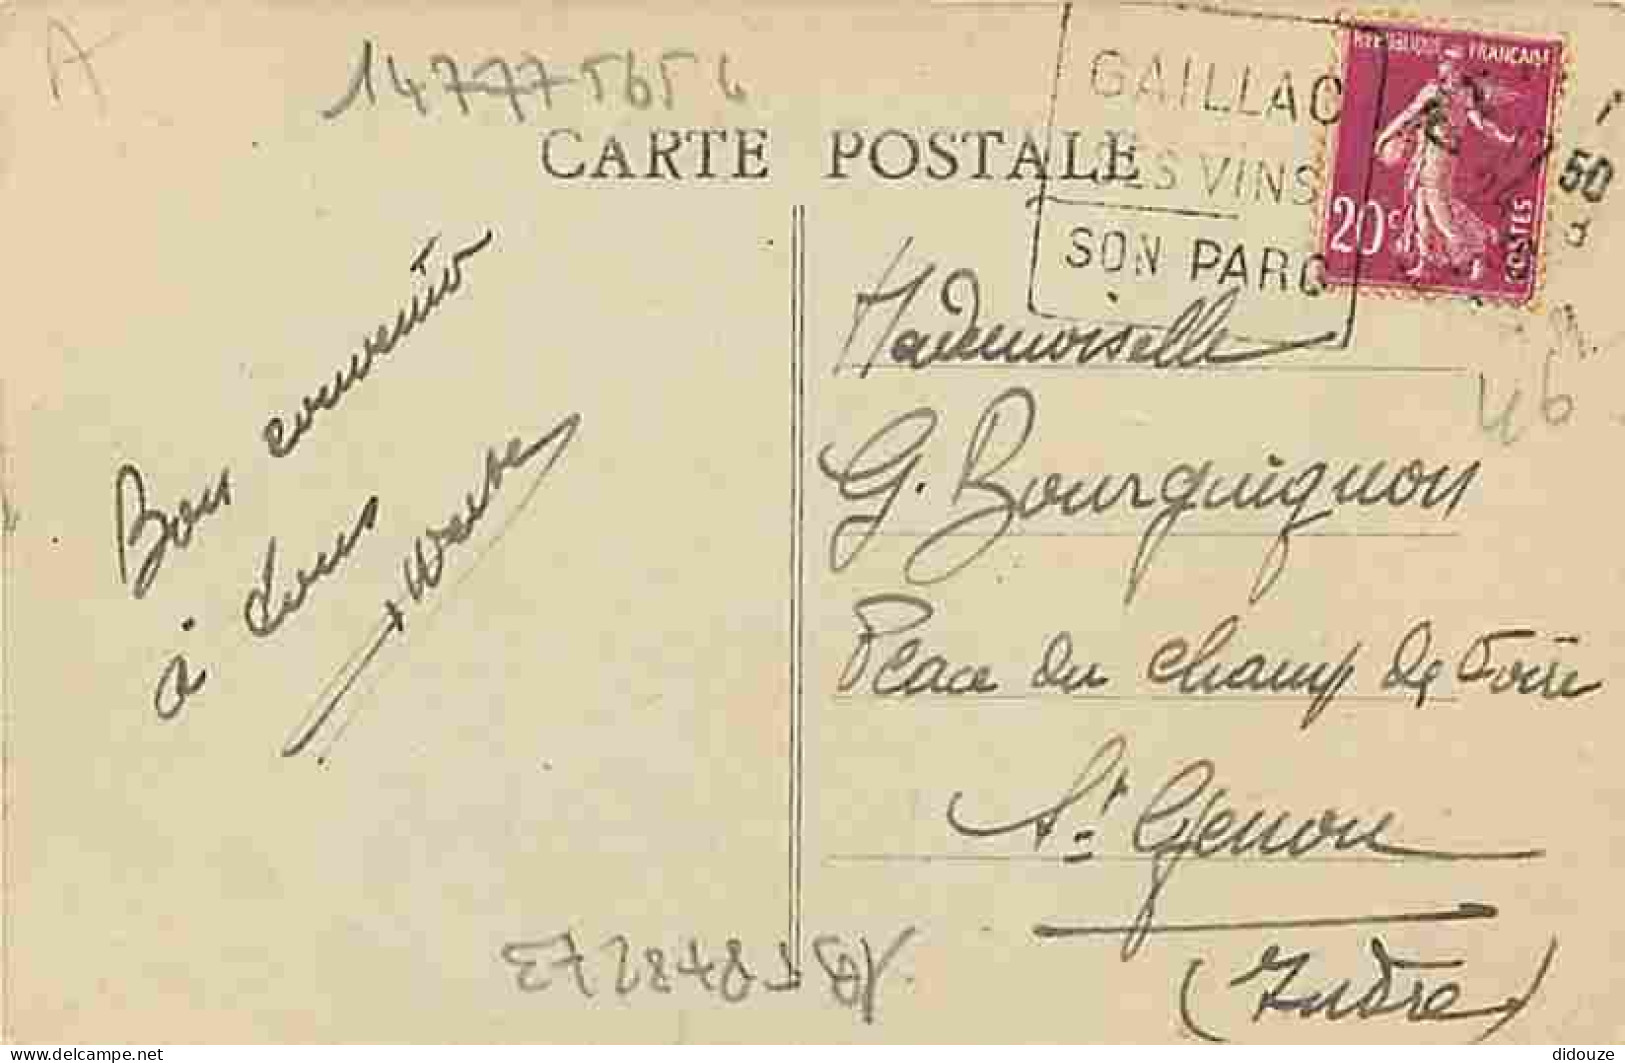 A
147775656
CARTE POSTALE
GAILLAC
SES VINS
SON PARC
REPUBLIQUE FRANCAISE
20c
POSTES
50
Bon souvenir
à tous
Mademoiselle
G. Bourguignon
Place du champ de Foire
St Genou
(Indre)
46
Delcampe.net
didouze